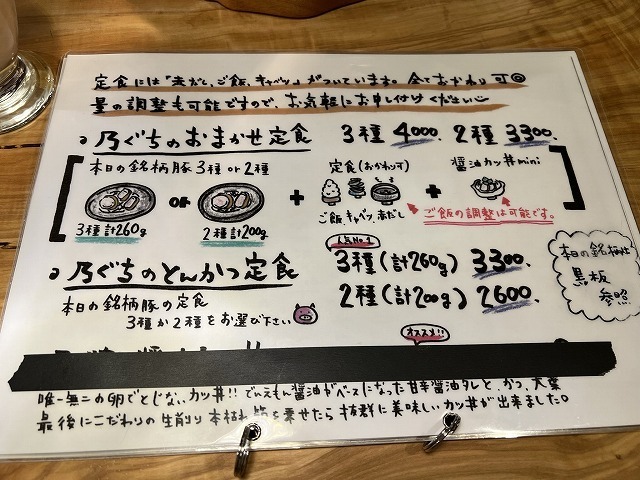 定食には「赤だし、ご飯、キャベツ」がついています。全ておかわり可◎
量の調整も可能ですので、お気軽にお申し付けください
乃ぐちのおまかせ定食 3種 4000. 2種 3300.
本日の銘柄豚 3種 or 2種
定食(おかわり可)
醤油カツ丼mini
or
+
+
3種計260g
2種計200g
ご飯、キャベツ、赤だし
ご飯の調整は可能です。
人気No.1
乃ぐちのとんかつ定食
3種(計260g) 3300.
本日の銘柄豚の定食
2種(計200g) 2600.
3種か2種をお選び下さい
本日の銘柄は
黒板
参照
オススメ!!
唯一無二の卵でとじない、カツ丼!! でいえもん醤油がベースになった甘辛醤油タレと、かつ、大葉
最後にこだわりの生削り本枯れ節を乗せたら抜群に美味しいカツ丼が出来ました。